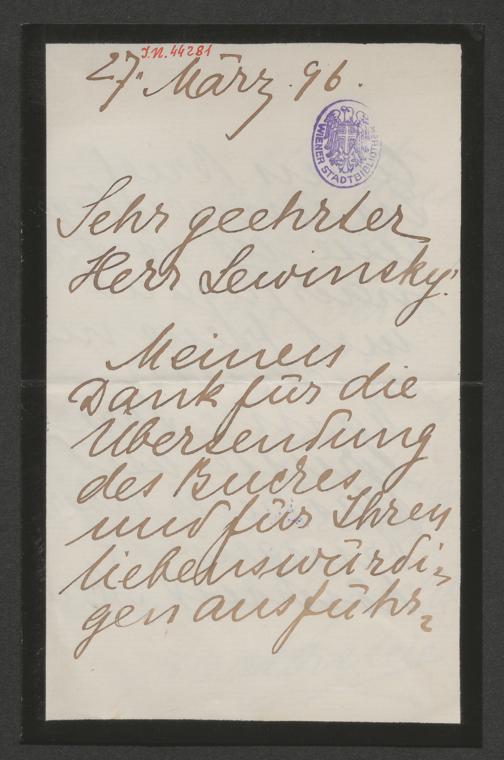 J.N. 44281
27. März. 96.
WIENER STADTBIBLIOTHEK
Sehr geehrter
Herr Lewinsky!
Meinen
Dank für die
Übersendung
des Buches
und für Ihren
liebenswürdi-
gen ausführ-